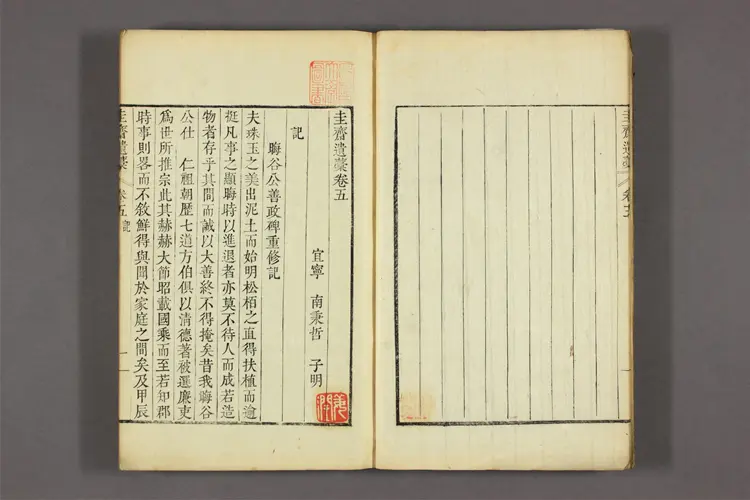 圭齋遺藁卷五
宜寧 南秉哲 子明
記
晦谷公善政碑重修記
夫珠玉之美出泥土而始明松栢之直得扶植而逾
挺凡事之顯晦時以進退者亦莫不待人而成若造
物者存乎其間而誠以大善終不得掩矣昔我晦谷
公仕 仁祖朝歷七道方伯俱以清德著被選廉吏
爲世所推宗此其赫赫大節昭載國乘而至若知郡
時事則畧而不敘鮮得與聞於家庭之間矣及甲辰
圭齋遺藁 卷五 記 一